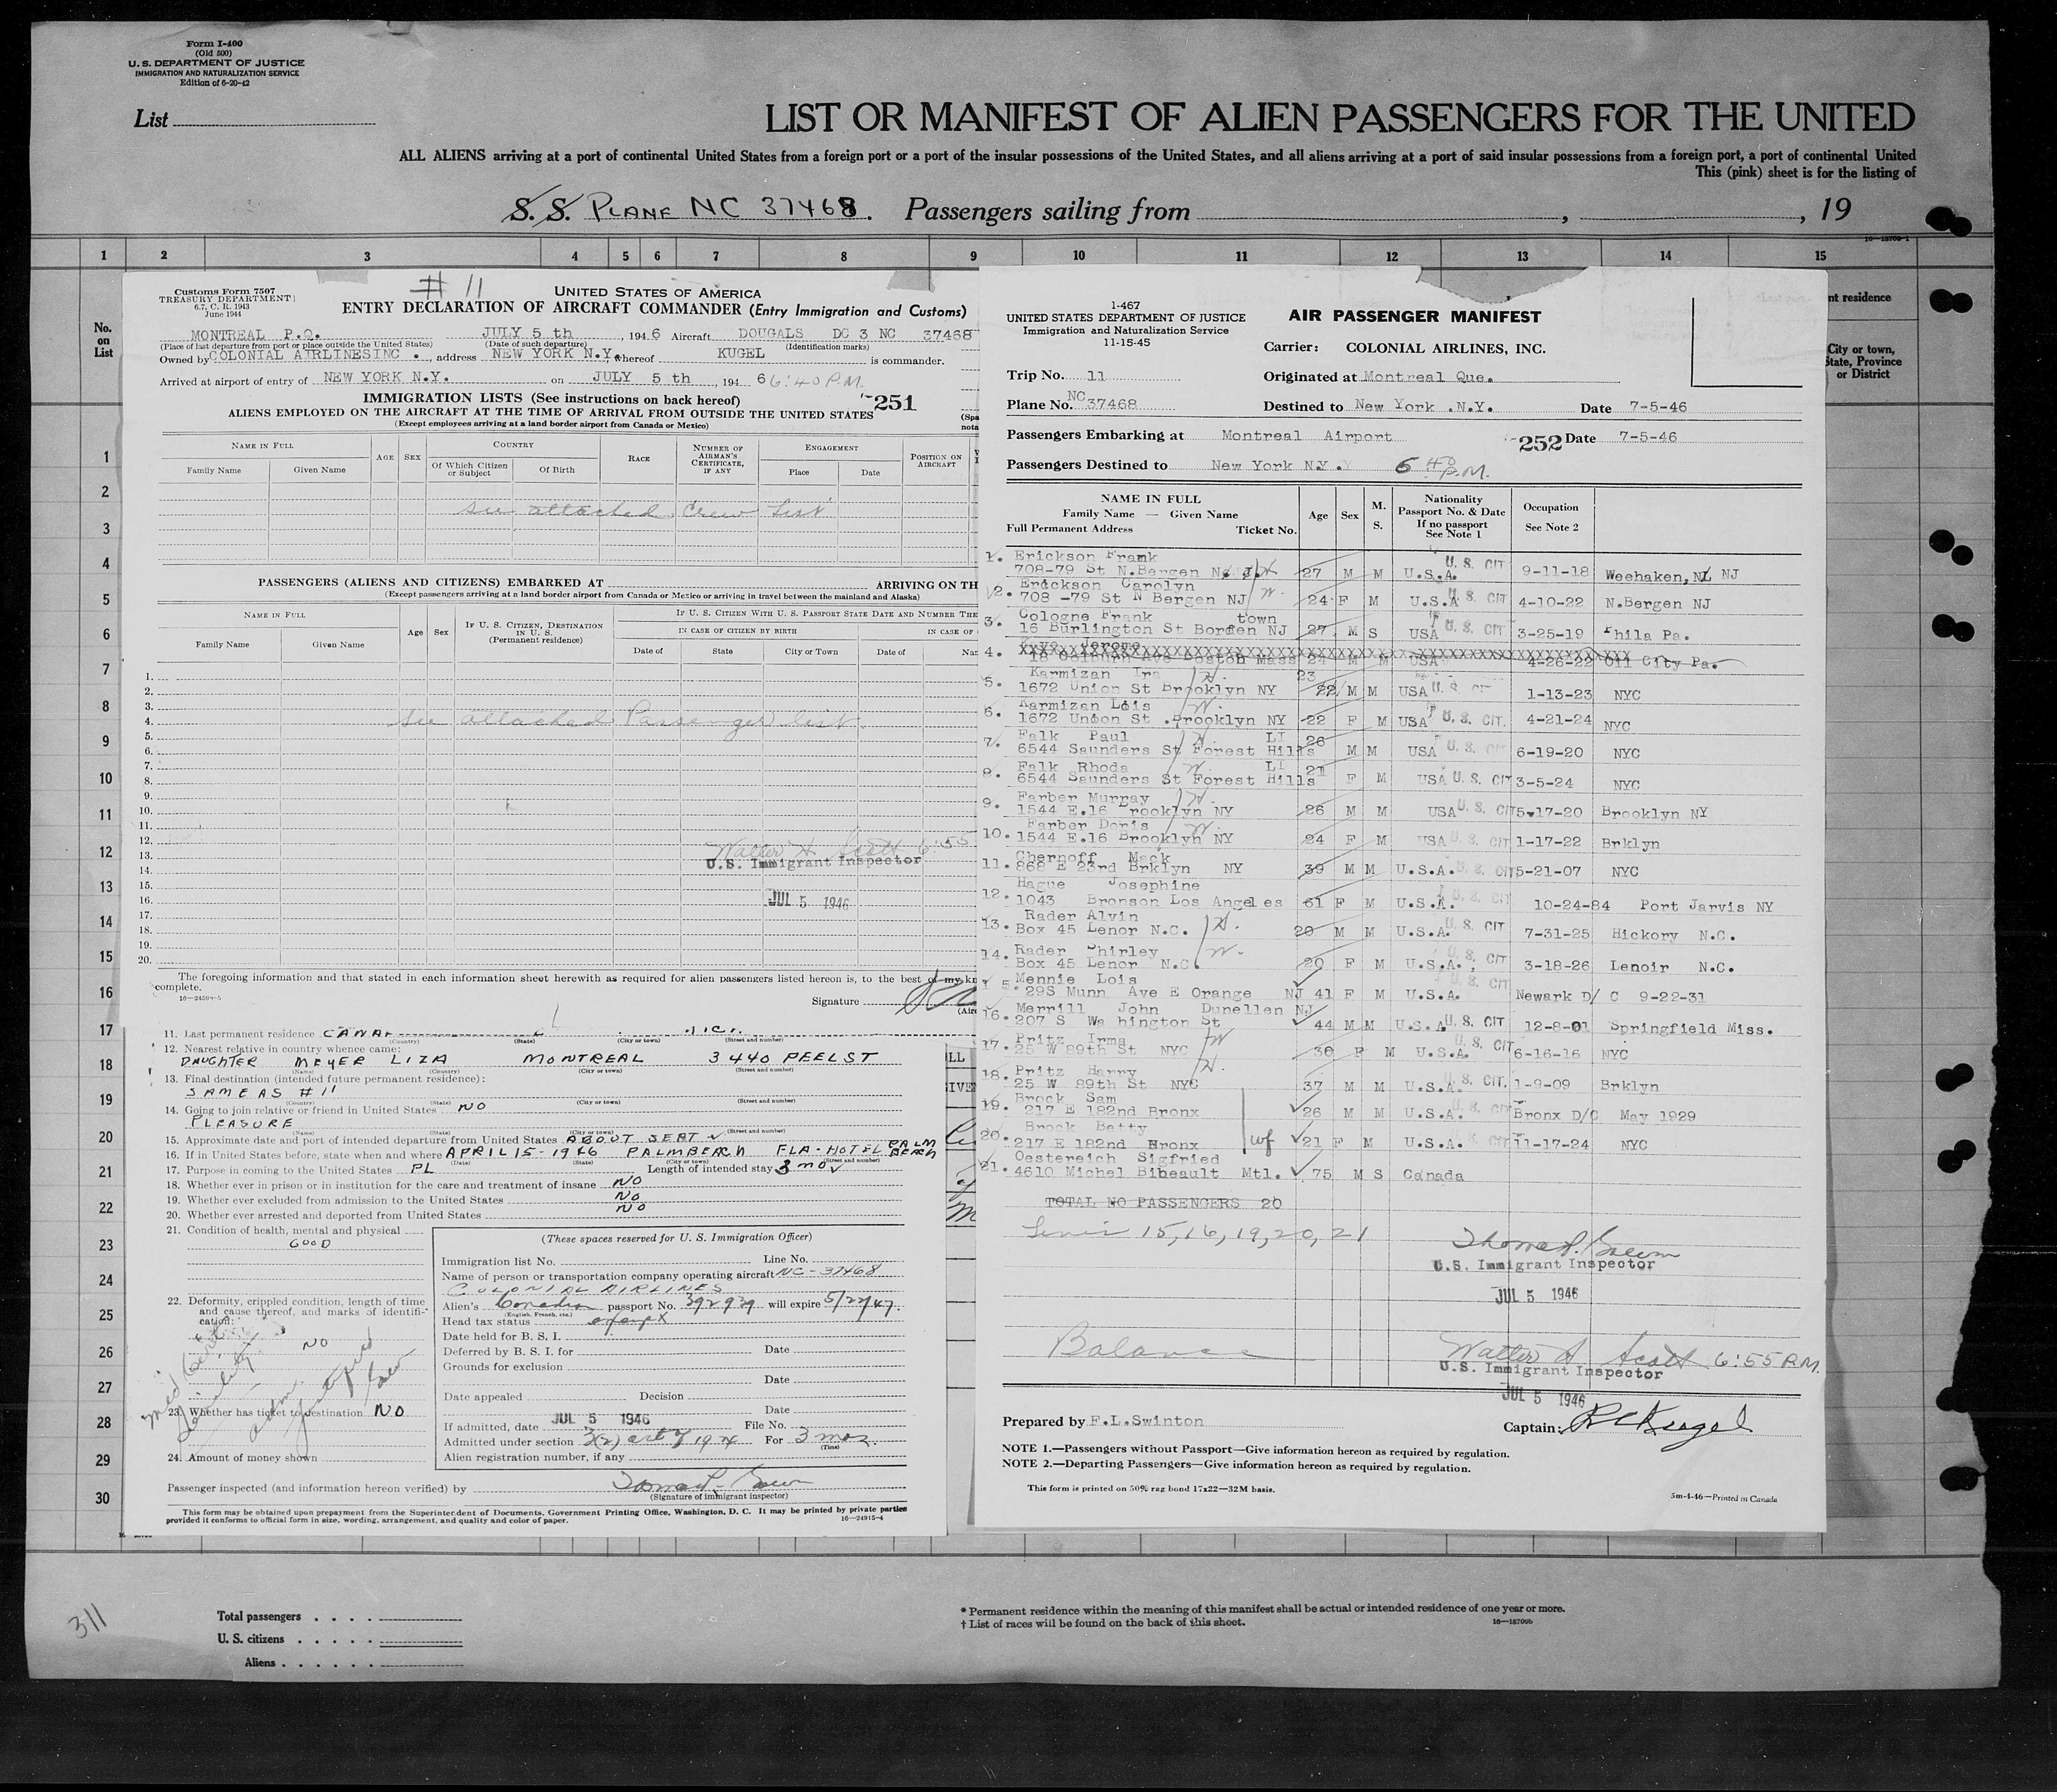 Form I-400
(Old 500)
U. S. DEPARTMENT OF JUSTICE
IMMIGRATION AND NATURALIZATION SERVICE
Edition of 6-20-42
List
LIST OR MANIFEST OF ALIEN PASSENGERS FOR THE UNITED
ALL ALIENS arriving at a port of continental United States from a foreign port or a port of the insular possessions of the United States, and all aliens arriving at a port of said insular possessions from a foreign port, a port of continental United
This (pink) sheet is for the listing of
S. S. PLANE NC 37468. Passengers sailing from , , 19
16—18709-1
1 2 3 4 5 6 7 8 9 10 11 12 13 14 15
No. on List
nt residence
City or town, State, Province or District
1
2
3
4
5
6
7
8
9
10
11
12
13
14
15
16
17
18
19
20
21
22
23
24
25
26
27
28
29
30
Customs Form 7507
TREASURY DEPARTMENT
6.7, C. R. 1943
June 1944
# 11
UNITED STATES OF AMERICA
ENTRY DECLARATION OF AIRCRAFT COMMANDER (Entry Immigration and Customs)
MONTREAL P.Q. JULY 5 th , 194 6 Aircraft DOUGALS DC 3 NC 37468
(Place of last departure from port or place outside the United States) (Date of such departure) (Identification marks)
Owned by COLONIAL AIRLINESINC . , address NEW YORK N.Y. thereof KUGEL is commander.
Arrived at airport of entry of NEW YORK N.Y. on JULY 5 th , 194 6 6:40 P.M.
IMMIGRATION LISTS (See instructions on back hereof) 251
ALIENS EMPLOYED ON THE AIRCRAFT AT THE TIME OF ARRIVAL FROM OUTSIDE THE UNITED STATES
(Except employees arriving at a land border airport from Canada or Mexico)
NAME IN FULL AGE SEX COUNTRY RACE NUMBER OF AIRMAN'S CERTIFICATE, IF ANY ENGAGEMENT POSITION ON AIRCRAFT
Family Name Given Name Of Which Citizen or Subject Of Birth Place Date
see attached Crew List
PASSENGERS (ALIENS AND CITIZENS) EMBARKED AT ARRIVING ON TH
(Except passengers arriving at a land border airport from Canada or Mexico or arriving in travel between the mainland and Alaska)
NAME IN FULL Age Sex IF U. S. CITIZEN, DESTINATION IN U. S. (Permanent residence) IF U. S. CITIZEN WITH U. S. PASSPORT STATE DATE AND NUMBER THE
IN CASE OF CITIZEN BY BIRTH IN CASE OF
Family Name Given Name Date of State City or Town Date of Nar
1.
2.
3.
4. see attached Passenger list.
5.
6.
7.
8.
9.
10.
11.
12.
13.
14.
15.
16.
17.
18.
19.
20.
Walter A Scott 6:55
U.S. Immigrant Inspector
JUL 5 1946
The foregoing information and that stated in each information sheet herewith as required for alien passengers listed hereon is, to the best of my kn
complete.
16—24598-5
Signature
11. Last permanent residence CANA
(Country) (State) (City or town) (Street and number)
12. Nearest relative in country whence came:
DAUGHTER MEYER LIZA MONTREAL 3440 PEEL ST
(Name) (Country) (City or town) (Street and number)
13. Final destination (intended future permanent residence):
SAME AS #11
(Country) (State) (City or town) (Street and number)
14. Going to join relative or friend in United States NO
PLEASURE
(Name) (State) (City or town) (Street and number)
15. Approximate date and port of intended departure from United States ABOUT SEPT
16. If in United States before, state when and where APRIL 15-1946 PALMBEACH FLA-HOTEL PALM BEACH
(Date) (State) (Street and number)
17. Purpose in coming to the United States PL Length of intended stay 3 mo
18. Whether ever in prison or in institution for the care and treatment of insane NO
19. Whether ever excluded from admission to the United States NO
20. Whether ever arrested and deported from United States NO
21. Condition of health, mental and physical
GOOD
22. Deformity, crippled condition, length of time and cause thereof, and marks of identification:
NO
23. Whether has ticket to destination NO
24. Amount of money shown
(These spaces reserved for U. S. Immigration Officer)
Immigration list No. Line No.
Name of person or transportation company operating aircraft NC-37468
COLONIAL AIRLINES
Alien's Canadian passport No. 392939 will expire 5/22/47.
(English, French, etc.)
Head tax status exempt
Date held for B. S. I.
Deferred by B. S. I. for Date
Grounds for exclusion
Date
Date appealed Decision
Date
If admitted, date JUL 5 1946 File No.
Admitted under section 3(2) act of 1924 For 3 mos.
(Time)
Alien registration number, if any
Passenger inspected (and information hereon verified) by
(Signature of immigrant inspector)
This form may be obtained upon prepayment from the Superintendent of Documents, Government Printing Office, Washington, D. C. It may be printed by private parties
provided it conforms to official form in size, wording, arrangement, and quality and color of paper.
16—24915-4
I-467
UNITED STATES DEPARTMENT OF JUSTICE
Immigration and Naturalization Service
11-15-45
AIR PASSENGER MANIFEST
Carrier: COLONIAL AIRLINES, INC.
Trip No. 11 Originated at Montreal Que.
Plane No. NC 37468 Destined to New York .N.Y. Date 7-5-46
Passengers Embarking at Montreal Airport 252 Date 7-5-46
Passengers Destined to New York N.Y. 6 40 P.M.
NAME IN FULL
Family Name — Given Name
Full Permanent Address Ticket No. Age Sex M. S. Nationality Passport No. & Date If no passport See Note 1 Occupation See Note 2
1. Erickson Frank
708-79 St N.Bergen N.J. H 27 M M U.S.A. U. S. CIT 9-11-18 Weehaken, NJ
2. Erickson Carolyn
708 -79 St N Bergen NJ W. 24 F M U.S.A U. S. CIT 4-10-22 N.Bergen NJ
3. Cologne Frank town
16 Burlington St Borden NJ 27 M S USA U. S. CIT 3-25-19 Phila Pa.
4. Jerome
18 Colburn Ave Boston Mass 24 M M USA 4-26-22 Oil City Pa.
5. Karmizan Ira H. 23
1672 Union St Brooklyn NY 22 M M USA U. S. CIT 1-13-23 NYC
6. Karmizan Lois W.
1672 Union St .Brooklyn NY 22 F M USA U. S. CIT. 4-21-24 NYC
7. Falk Paul H. LI 26
6544 Saunders St Forest Hills M M USA U. S. CIT 6-19-20 NYC
8. Falk Rhoda W. LI 21
6544 Saunders St Forest Hills F M USA U. S. CIT 3-5-24 NYC
9. Farber Murray H.
1544 E.16 rooklyn NY 26 M M USA U. S. CIT 5-17-20 Brooklyn NY
10. Farber Doris W.
1544 E.16 Brooklyn NY 24 F M USA U. S. CIT 1-17-22 Brklyn
11. Chernoff Mack
868 E 23rd Brklyn NY 39 M M U.S.A. U. S. CIT 5-21-07 NYC
12. Hague Josephine
1043 Bronson Los Angeles 61 F M U.S.A. U. S. CIT 10-24-84 Port Jarvis NY
13. Rader Alvin H.
Box 45 Lenor N.C. 20 M M U.S.A. U. S. CIT 7-31-25 Hickory N.C.
14. Rader Shirley W.
Box 45 Lenor N.C. 20 F M U.S.A. U. S. CIT 3-18-26 Lenoir N.C.
15. Mennie Lois
29S Munn Ave E Orange NJ 41 F M U.S.A. U. S. CIT Newark D/ C 9-22-31
16. Merrill John Dunellen NJ
207 S Wa hington St 44 M M U.S.A U. S. CIT 12-8-01 Springfield Miss.
17. Pritz Irma W
25 W 89th St NYC 30 F M U.S.A. U. S. CIT 6-16-16 NYC
18. Pritz Harry H.
25 W 89th St NYC 37 M M U.S.A. U. S. CIT. 1-9-09 Brklyn
19. Brock Sam
217 E 182nd Bronx 26 M M U.S.A. U. S. CIT Bronx D/C May 1929
20. Brock Betty
217 E 182nd Bronx wf 21 F M U.S.A. U. S. CIT 11-17-24 NYC
21. Oestereich Sigfried
4610 Michel Bibeault Mtl. 75 M S Canada
TOTAL NO PASSENGERS 20
15, 16, 19, 20, 21
U.S. Immigrant Inspector
JUL 5 1946
Balance
Walter A Scott 6:55 P.M.
U.S. Immigrant Inspector
JUL 5 1946
Prepared by F.L.Swinton Captain:
NOTE 1.—Passengers without Passport—Give information hereon as required by regulation.
NOTE 2.—Departing Passengers—Give information hereon as required by regulation.
This form is printed on 50% rag bond 17x22—32M basis.
5m-4-46—Printed in Canada
311
Total passengers . . . .
U. S. citizens . . . . .
Aliens . . . . . .
* Permanent residence within the meaning of this manifest shall be actual or intended residence of one year or more.
† List of races will be found on the back of this sheet.
16—18709b